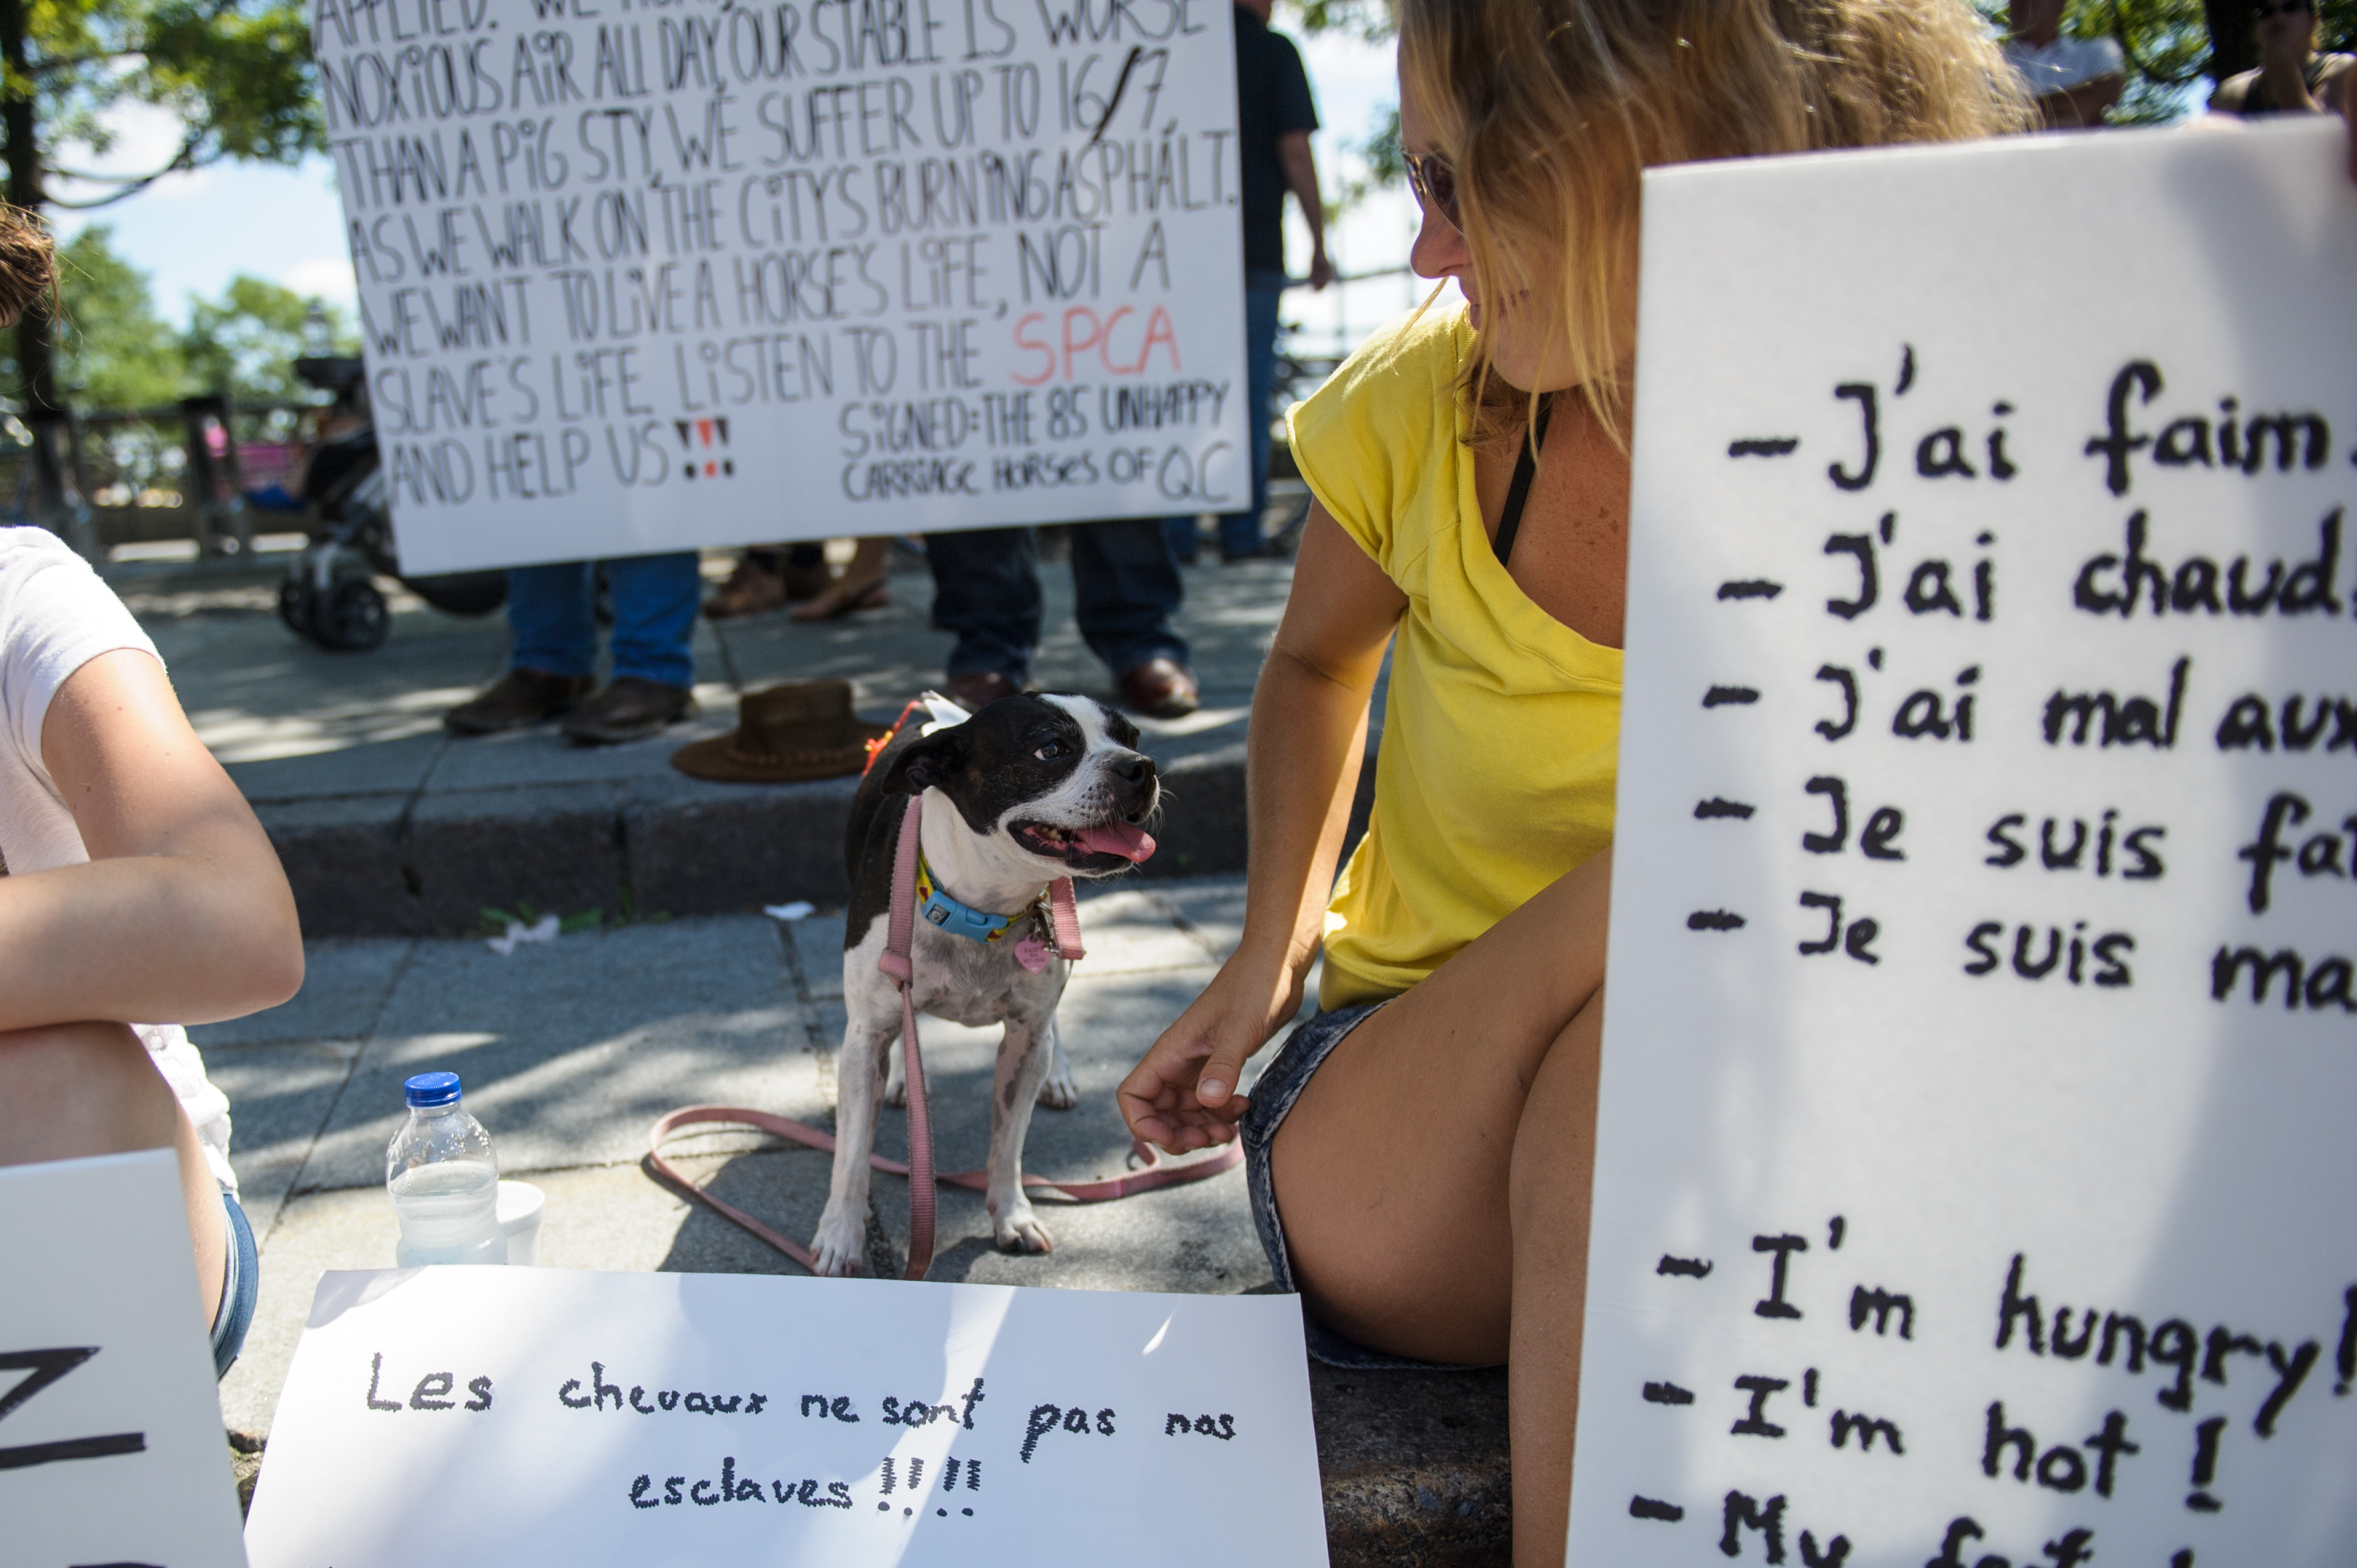 APPLIED. WE
NOXiOUS AiR ALL DAY, OUR STABLE IS WORSE
THAN A PiG STY, WE SUFFER UP TO 16/7,
AS WE WALK ON THE CiTY'S BURNiNG ASPHALT.
WE WANT TO LiVE A HORSE'S LiFE, NOT A
SLAVE'S LiFE. LiSTEN TO THE SPCA
AND HELP US!!!
SiGNED: THE 85 UNHAPPY
CARRIAGE HORSES OF QC
- J'ai faim.
- J'ai chaud!
- J'ai mal aux
- Je suis
- Je suis
- I'm hungry!
- I'm hot!
- My
Les chevaux ne sont pas nos
esclaves !!!!